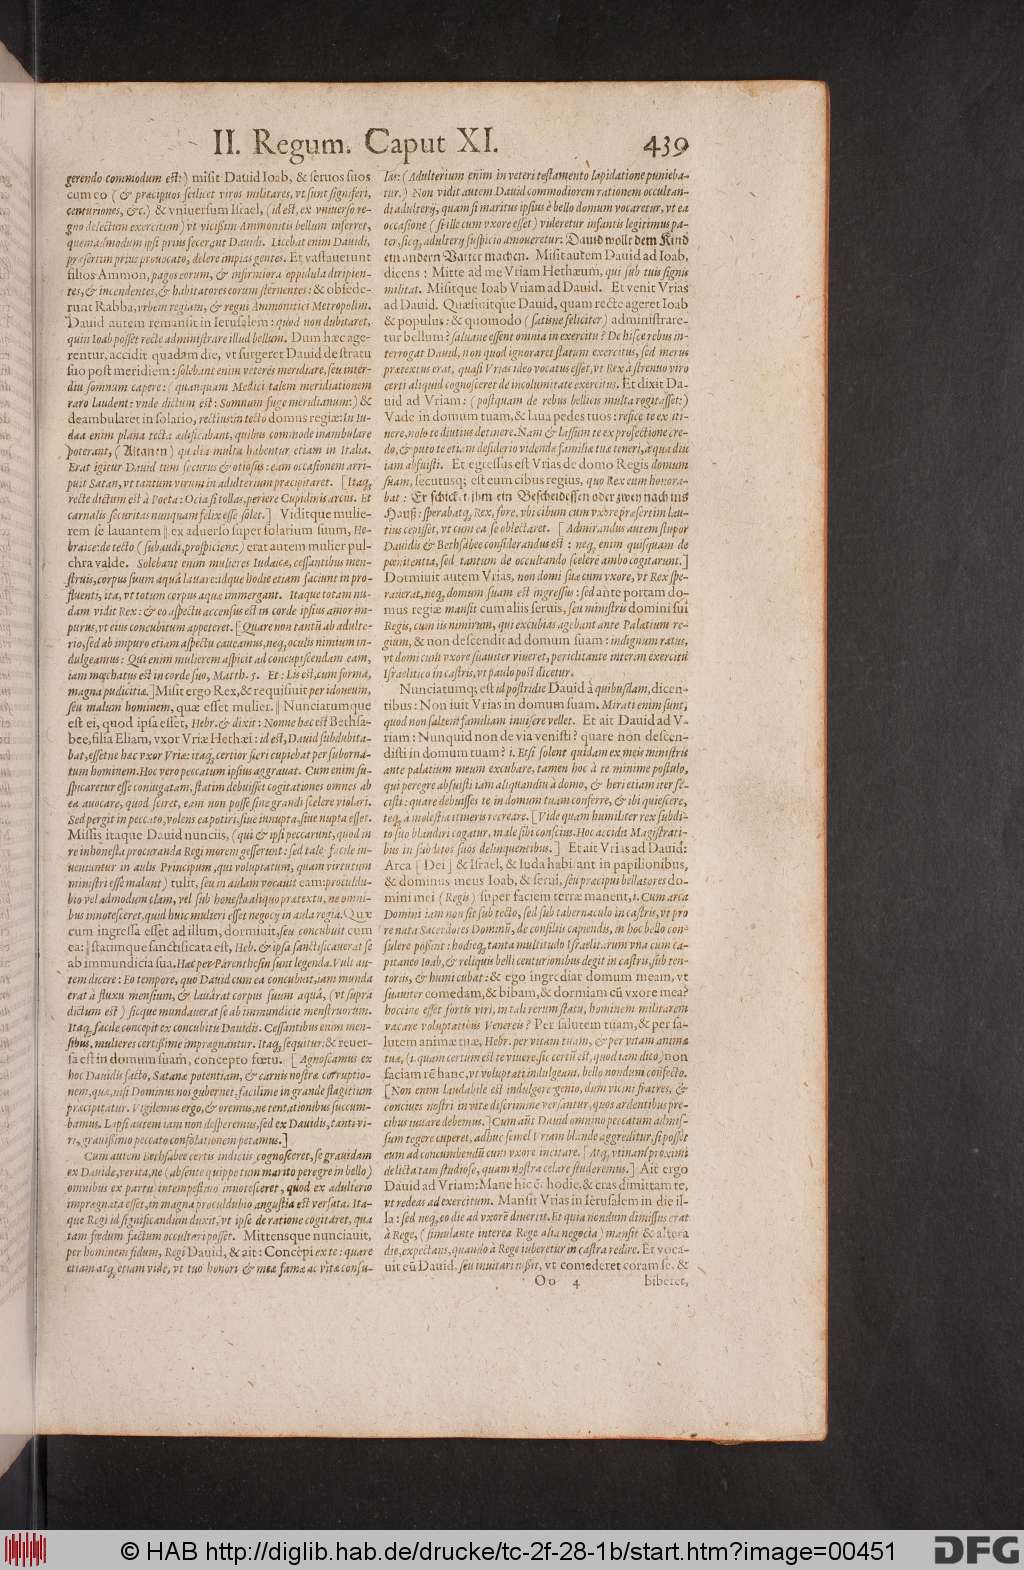 II. Regum. Caput XI. 439
gerendo commodum est:) misit Dauid Ioab, & seruos suos
cum eo (& præcipuos scilicet viros militares, vt sunt signiferi,
centuriones, &c.) & vniuersum Israel, (id est, ex vniuerso re-
gno delectum exercitum) vt vicissim Ammonitis bellum inferret,
quemadmodum ipsi prius fecerant Dauidi. Licebat enim Dauidi,
præsertim prius prouocato, delere impias gentes. Et vastauerunt
filios Ammon, pagos eorum, & infirmiora oppidula diripien-
tes, & incendentes, & habitatores eorum sternentes: & obsede-
runt Rabba, vrbem regiam, & regni Ammonitici Metropolin.
Dauid autem remansit in Ierusalem: quod non dubitaret,
quin Ioab posset recte administrare illud bellum. Dum hæc age-
rentur, accidit quadam die, vt surgeret Dauid de stratu
suo post meridiem: solebant enim veteres meridiare, seu inter-
diu somnum capere: (quanquam Medici talem meridiationem
raro laudent: vnde dictum est: Somnum fuge meridianum:) &
deambularet in solario, rectius in tecto domus regiæ: In Iu-
dæa enim plana tecta ædificabant, quibus commode inambulare
poterant, (Altanen) qualia multa habentur etiam in Italia.
Erat igitur Dauid tum securus & otiosus: eam occasionem arri-
puit Satan, vt tantum virum in adulterium præcipitaret. [Itaq;
recte dictum est à Poeta: Ocia si tollas, periere Cupidinis arcus. Et
carnalis securitas nunquam felix esse solet.] Viditque mulie-
rem se lauantem || ex aduerso super solarium suum, He-
braice: de tecto (subaudi, prospiciens:) erat autem mulier pul-
chra valde. Solebant enim mulieres Iudaicæ, cessantibus men-
struis, corpus suum aquâ lauare: idque hodie etiam faciunt in pro-
fluenti, ita, vt totum corpus aquæ immergant. Itaque totam nu-
dam vidit Rex: & eo aspectu accensus est in corde ipsius amor im-
purus, vt eius concubitum appeteret. [Quare non tantũ ab adulte-
rio, sed ab impuro etiam aspectu caueamus, neq; oculis nimium in-
dulgeamus: Qui enim mulierem aspicit ad concupiscendam eam,
iam mœchatus est in corde suo, Matth. 5. Et: Lis est, cum forma,
magna pudicitiæ.] Misit ergo Rex, & requisiuit per idoneum,
seu malum hominem, quæ esset mulier. || Nunciatumque
est ei, quod ipsa esset, Hebr. & dixit: Nonne hæc est Bethsa-
bee, filia Eliam, vxor Vriæ Hethæi: id est, Dauid subdubita-
bat, essetne hæc vxor Vriæ: itaq; certior fieri cupiebat per suborna-
tum hominem. Hoc vero peccatum ipsius aggrauat. Cum enim su-
spicaretur esse coniugatam, statim debuisset cogitationes omnes ab
ea auocare, quod sciret, eam non posse sine grandi scelere violari.
Sed pergit in peccato, volens ea potiri, siue innupta, siue nupta esset.
Missis itaque Dauid nunciis, (qui & ipsi peccarunt, quod in
re inhonesta procuranda Regi morem gesserunt: sed tale facile in-
ueniuntur in aulis Principum, qui voluptatum, quam virtutum
ministri esse malunt) tulit, seu in aulam vocauit eam: proculdu-
bio vel admodum clam, vel sub honesto aliquo prætextu, ne omni-
bus innotesceret, quid huic mulieri esset negocij in aula regia. Quæ
cum ingressa esset ad illum, dormiuit, seu concubuit cum
ea: || statimque sanctificata est, Heb. & ipsa sanctificauerat se
ab immundicia sua. Hæc per Parenthesin sunt legenda. Vult au-
tem dicere: Eo tempore, quo Dauid cum ea concubuit, iam munda
erat à fluxu mensium, & lauârat corpus suum aquâ, (vt supra
dictum est) sicque mundauerat se ab immundicie menstruorum.
Itaq; facile concepit ex concubitu Dauidis. Cessantibus enim men-
sibus, mulieres certissime imprægnantur. Itaq; sequitur: & reuer-
sa est in domum suam, concepto fœtu. [Agnoscamus ex
hoc Dauidis facto, Satanæ potentiam, & carnis nostræ corruptio-
nem, quæ, nisi Dominus nos gubernet, facilime in grande flagitium
præcipitatur. Vigilemus ergo, & oremus, ne tentationibus succum-
bamus. Lapsi autem iam non desperemus, sed ex Dauidis, tanti vi-
ri, grauissimo peccato consolationem petamus.]
Cum autem Bethsabee certis indiciis cognosceret, se grauidam
ex Dauide, verita, ne (absente quippe tum marito peregre in bello)
omnibus ex partu intempestiuo innotesceret, quod ex adulterio
imprægnata esset, in magna proculdubio angustia est versata. Ita-
que Regi id significandum duxit, vt ipse de ratione cogitaret, qua
tam fœdum factum occultari posset. Mittensque nunciauit,
per hominem fidum, Regi Dauid, & ait: Concepi ex te: quare
etiam atq; etiam vide, vt tuo honori & meæ famæ ac vitæ consu-
las: (Adulterium enim in veteri testamento lapidatione punieba-
tur.) Non vidit autem Dauid commodiorem rationem occultan-
di adulterij, quam si maritus ipsius è bello domum vocaretur, vt ea
occasione (si ille cum vxore esset) videretur infantis legitimus pa-
ter, sicq; adulterij suspicio amoueretur: Dauid wollt dem Kind
ein andern Vatter machen. Misit autem Dauid ad Ioab,
dicens: Mitte ad me Vriam Hethæum, qui sub tuis signis
militat. Misitque Ioab Vriam ad Dauid. Et venit Vrias
ad Dauid. Quæsiuitque Dauid, quam recte ageret Ioab
& populus: & quomodo (satisne feliciter) administrare-
tur bellum? saluane essent omnia in exercitu? De hisce rebus in-
terrogat Dauid, non quod ignoraret statum exercitus, sed merus
prætextus erat, quasi Vrias ideo vocatus esset, vt Rex à strenuo viro
certi aliquid cognosceret de incolumitate exercitus. Et dixit Da-
uid ad Vriam: (postquam de rebus bellicis multa rogitasset:)
Vade in domum tuam, & laua pedes tuos: refice te ex iti-
nere, nolo te diutius detinere. Nam & lassum te ex profectione cre-
do, & puto te etiam desiderio videndæ familiæ tuæ teneri, à qua diu
iam abfuisti. Et egressus est Vrias de domo Regis domum
suam, secutusq; est eum cibus regius, quo Rex eum honora-
bat: Er schicket ihm ein Bescheidessen oder zwey nach ins
Hauß: sperabatq; Rex, fore, vbi cibum cum vxore præsertim lau-
tius cepisset, vt cum ea se oblectaret. [Admirandus autem stupor
Dauidis & Bethsabee considerandus est: neq; enim quisquam de
pœnitentia, sed tantum de occultando scelere ambo cogitarunt.]
Dormiuit autem Vrias, non domi suæ cum vxore, vt Rex spe-
rauerat, neq; domum suam est ingressus: sed ante portam do-
mus regiæ mansit cum aliis seruis, seu ministris domini sui
Regis, cum iis nimirum, qui excubias agebant ante Palatium re-
gium, & non descendit ad domum suam: indignum ratus,
vt domi cum vxore suauiter viueret, periclitante interim exercitu
Israelitico in castris, vt paulo post dicetur.
Nunciatumq; est id postridie Dauid à quibusdam, dicen-
tibus: Non iuit Vrias in domum suam. Mirati enim sunt,
quod non saltem familiam inuisere vellet. Et ait Dauid ad V-
riam: Nunquid non de via venisti? quare non descen-
disti in domum tuam? i. Etsi solent quidam ex meis ministris
ante palatium meum excubare, tamen hoc à te minime postulo,
qui peregre abfuisti iam aliquandiu à domo, & heri etiam iter fe-
cisti: quare debuisses te in domum tuam conferre, & ibi quiescere,
teq; à molestia itineris recreare. [Vide quam humiliter rex subdi-
to suo blandiri cogatur, male sibi conscius. Hoc accidit Magistrati-
bus in subditos suos delinquentibus.] Et ait Vrias ad Dauid:
Arca [Dei] & Israel, & Iuda habitant in papilionibus,
& dominus meus Ioab, & serui, seu præcipui bellatores do-
mini mei (Regis) super faciem terræ manent, i. Cum arca
Domini iam non sit sub tecto, sed sub tabernaculo in castris, vt pro
re nata Sacerdotes Dominũ, de consiliis capiendis, in hoc bello con-
sulere possint: hodieq; tanta multitudo Israelitarum vna cum ca-
pitaneo Ioab, & reliquis belli centurionibus degit in castris, sub ten-
toriis, & humi cubat: & ego ingrediar domum meam, vt
suauiter comedam, & bibam, & dormiam cũ vxore mea?
hoccine esset fortis viri, in tali rerum statu, hominem militarem
vacare voluptatibus Venereis? Per salutem tuam, & per sa-
lutem animæ tuæ, Hebr. per vitam tuam, & per vitam animæ
tuæ, (i. quam certum est te viuere, sic certũ est, quod iam dico) non
faciam rẽ hanc, vt voluptati indulgeam, bello nondum confecto.
[Non enim laudabile est indulgere genio, dum vicini fratres, &
conciues nostri in vitæ discrimine versantur, quos ardentibus pre-
cibus iuuare debemus.] Cum aũt Dauid omnino peccatum admis-
sum tegere cuperet, adhuc semel Vriam blande aggreditur, si posset
eum ad concumbendũ cum vxore incitare. [Atq; vtinam proximi
delicta tam studiose, quam nostra celare studeremus.] Ait ergo
Dauid ad Vriam: Mane hic ẽt hodie, & cras dimittam te,
vt redeas ad exercitum. Mansit Vrias in Ierusalem in die il-
la: sed neq; eo die ad vxorẽ diuertit. Et quia nondum dimissus erat
à Rege, (simulante interea Rege alia negocia) mansit & altera
die, expectans, quando à Rege iuberetur in castra redire. Et voca-
uit eũ Dauid, seu inuitari iussit, vt comederet coram se, &
Oo 4 biberet,
© HAB http://diglib.hab.de/drucke/tc-2f-28-1b/start.htm?image=00451
DFG